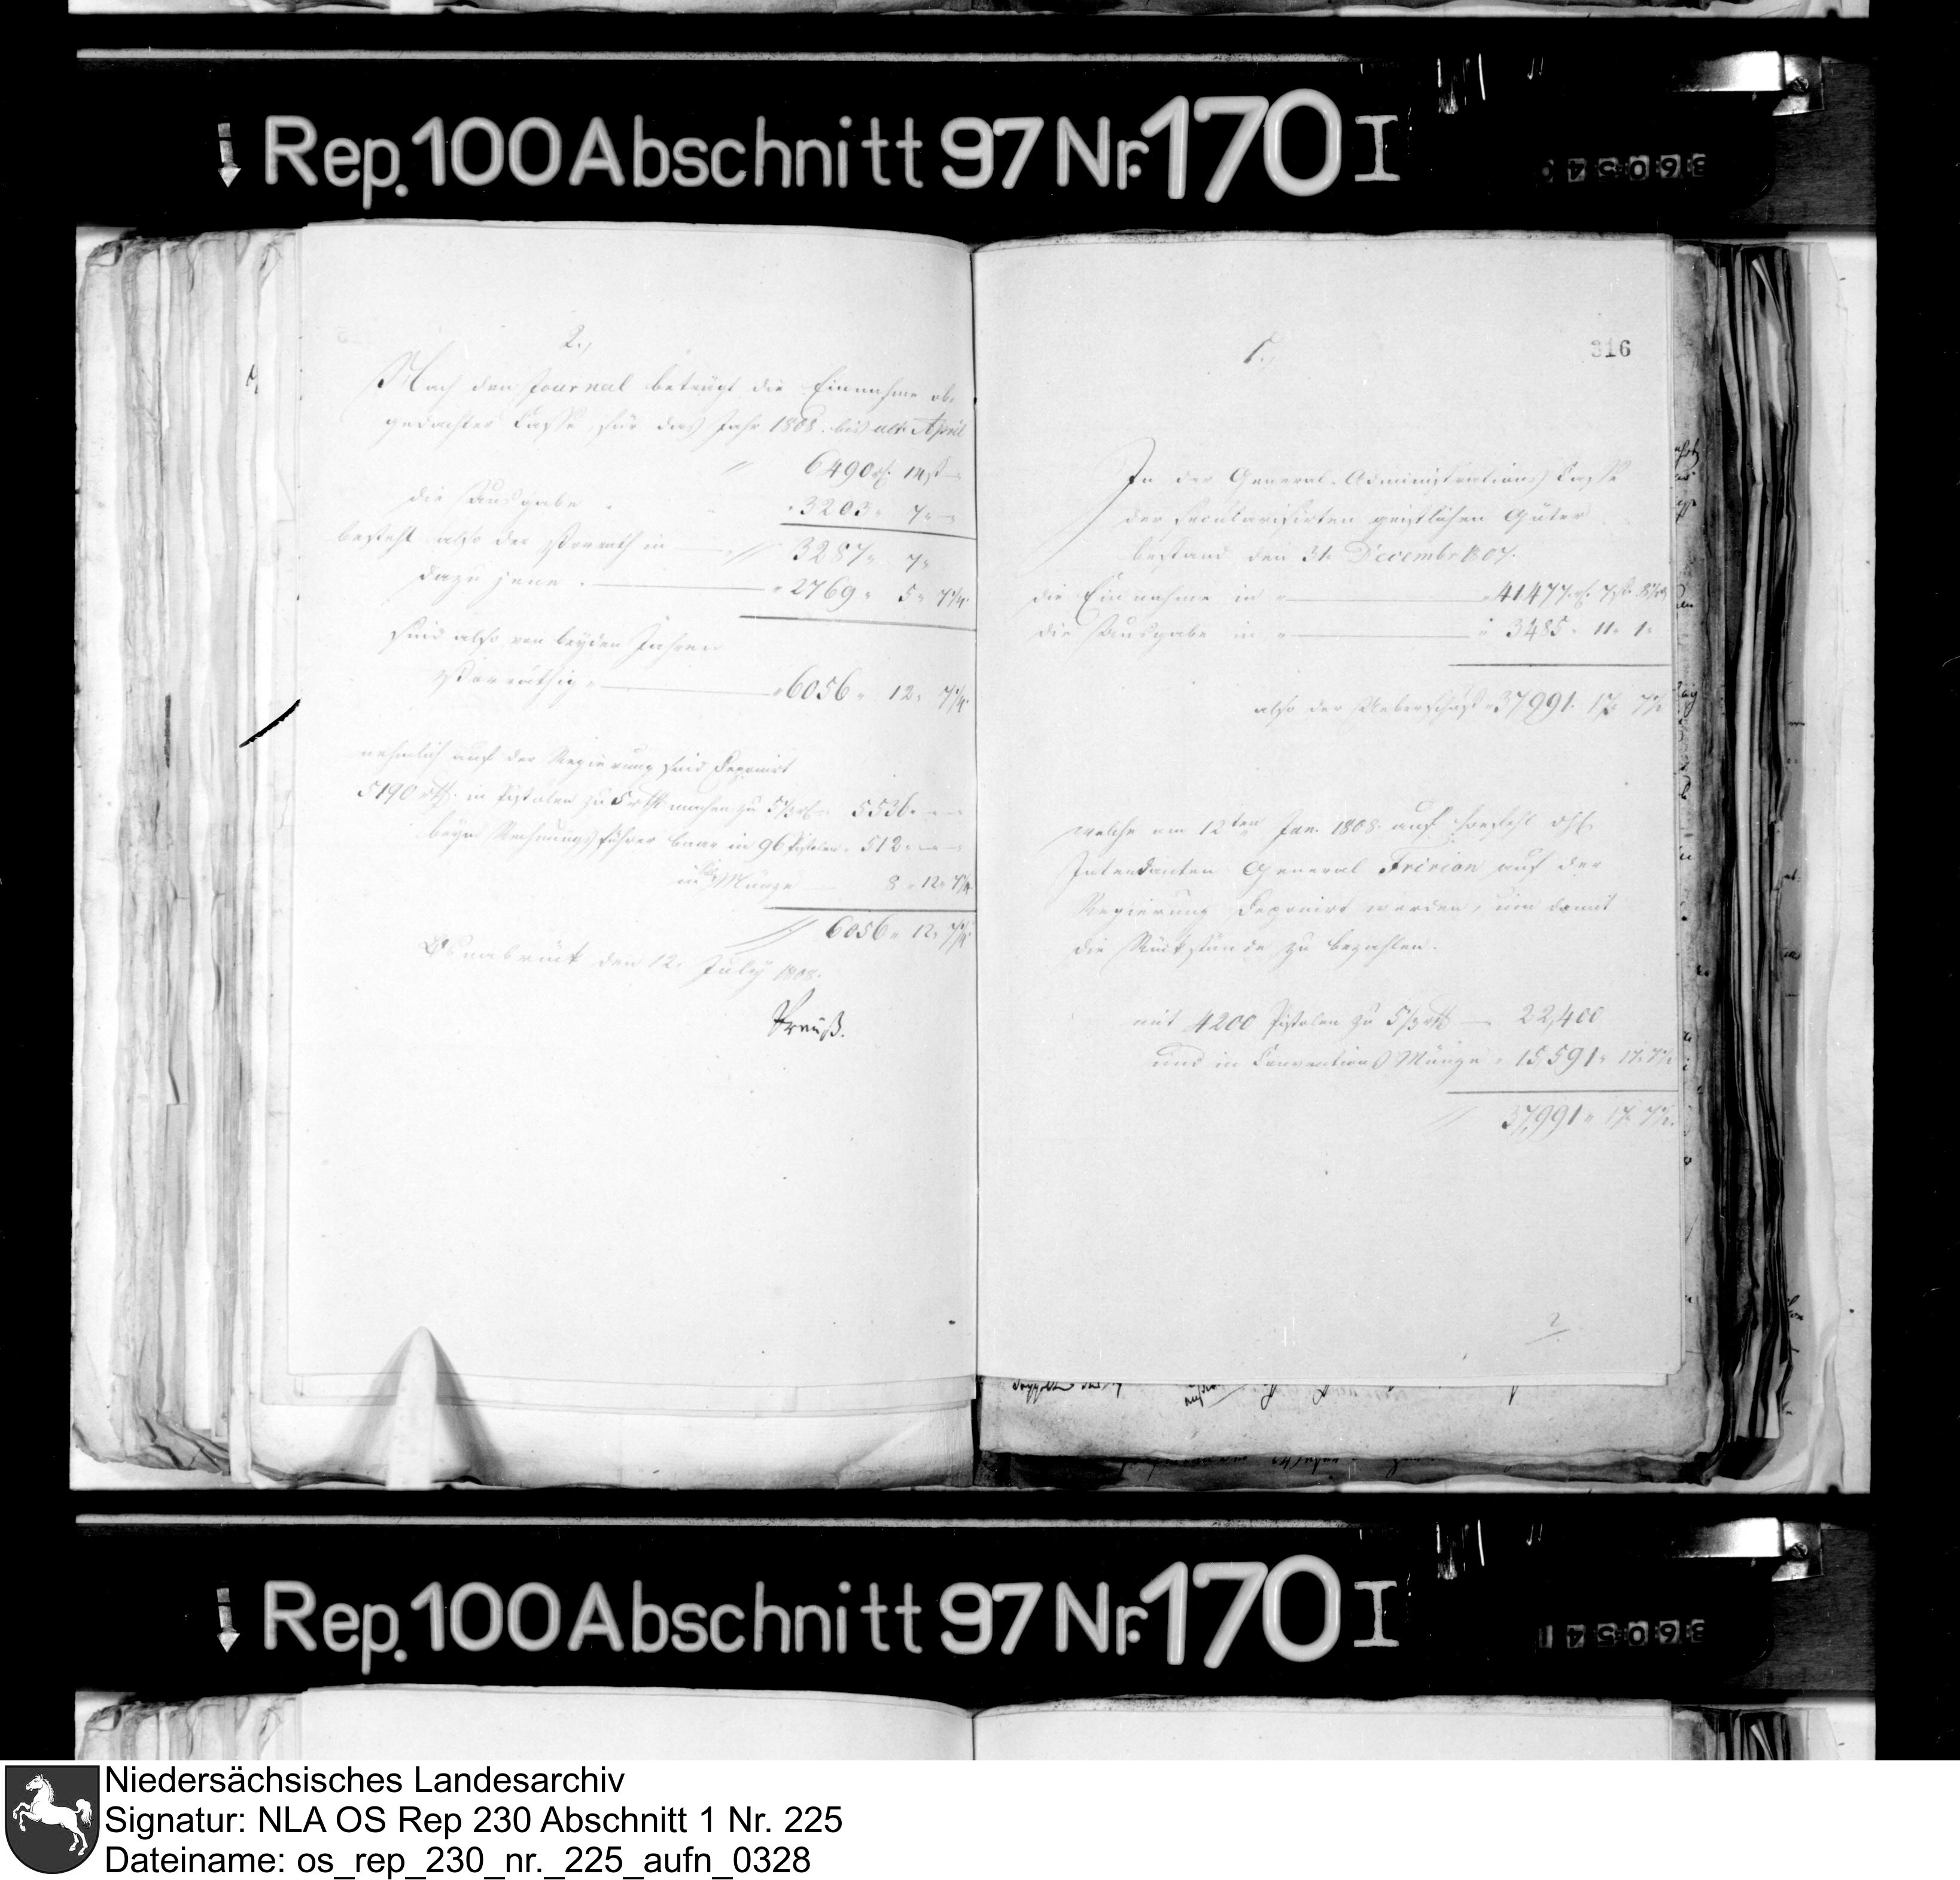 Rep. 100 Abschnitt 97 Nr. 170 I
360540
2.,
Nach dem Journal beträgt die Einnahme ob-
gedachter Casse, für das Jahr 1808. bis ult. April
6490 rt. 14 ß —
die Ausgabe 3203 " 7 " —
besteht also der Vorrath in — 3287 " 7 "
dazu jene — " 2769 " 5 " 7 1/4
sind also von beyden Jahren
Vorräthig — " 6056 " 12 " 7 1/4
nehmlich auf der Regierung sind deponirt
5190 rthl. in Pistolen zu 5 rthl machen zu 5 1/3 rt. 5536 " — —
beym Rechnungsführer baar in 96 Pistolen " 512 " — —
in Münze — 8 " 12 " 7 1/4
6056 " 12 " 7 1/4
Osnabrück den 12. July 1808.
Preuß.
316
1.,
In der General-Administrations Casse
der secularisirten geistlichen Güter
bestand den 31. Decembr 1807.
die Einnahme in " — " 41477 rt. 7 ß 8 1/2
die Ausgabe in " — " 3485 " 11 " 1 "
also der Ueberschuß " 37991 " 17 " 7 1/2
welche am 12ten Jan. 1808. auf Befehl
Intendanten General Fririon auf der
Regierung deponirt worden, um damit
die Rückstände zu bezahlen.
mit 4200 Pistolen zu 5 1/3 rthl — 22,400
und in Conventions Münze " 15591 " 17 " 7 1/2
37,991 " 17 " 7 1/2
Rep. 100 Abschnitt 97 Nr. 170 I
360541
Niedersächsisches Landesarchiv
Signatur: NLA OS Rep 230 Abschnitt 1 Nr. 225
Dateiname: os_rep_230_nr._225_aufn_0328